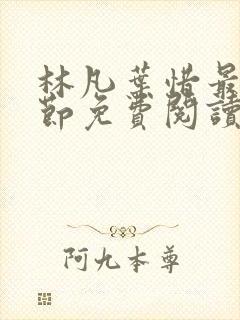 林凡葉惜最
節免費閱讀
阿九本尊